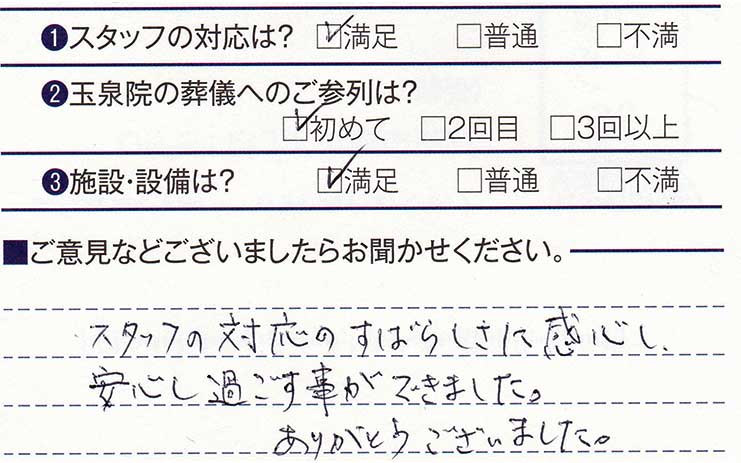 ❶スタッフの対応は? ☑満足 □普通 □不満
❷玉泉院の葬儀へのご参列は?
☑初めて □2回目 □3回以上
❸施設・設備は? ☑満足 □普通 □不満
■ご意見などございましたらお聞かせください。
スタッフの対応のすばらしさに感心し、
安心し過ごす事ができました。
ありがとうございました。